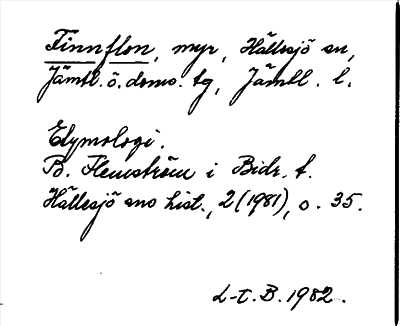 Finnflon, myr, Hällesjö sn,
Jämtl. ö. doms. tg, Jämtl. l.
Etymologi.
B. Flemström i Bidr. t.
Hällesjö sns hist., 2 (1981), s. 35.
L-t. B. 1982.